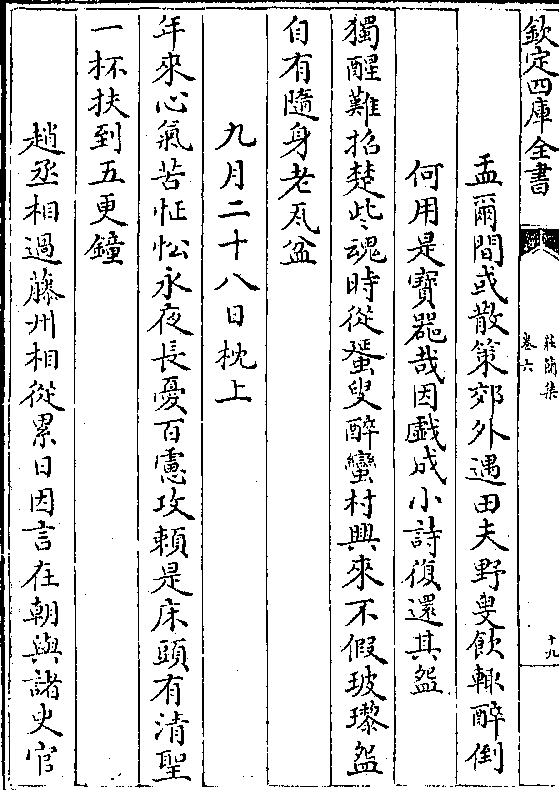 欽定四庫全書
莊簡集
卷六
十九
盂爾間或散策郊外遇田夫野叟飲輒醉倒
何用是寶器哉因戲成小詩復還其盌
獨醒難招楚些魂時從蜑叟醉蠻村興來不假玻瓈盌
自有隨身老瓦盆
九月二十八日枕上
年來心氣苦怔忪永夜長憂百慮攻賴是床頭有清聖
一杯扶到五更鐘
趙丞相過藤州相從累日因言在朝與諸史官